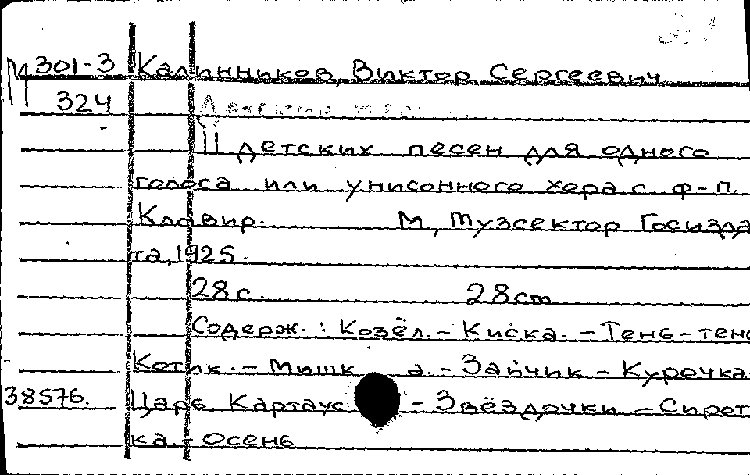 М 301-3 Калинников, Виктор Сергеевич
324
11 детских песен для одного
голоса или унисонного хора с ф-п.
Клавир. М, Музсектор Госизда
та, 1925.
28 с. 28 cm
Содерж.: Козёл. - Киска. - Тень-тень
Котик. - Мишка. - Зайчик - Курочка
38576. Царь Картаус - Звёздочки - Сирот
ка. - Осень